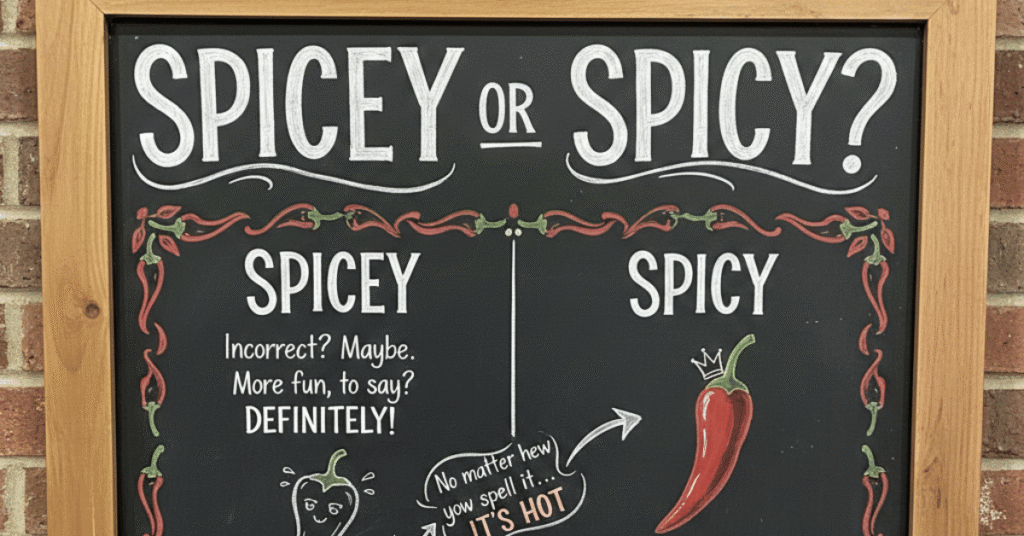 SPICEY OR SPICY?
SPICEY
Incorrect? Maybe.
More fun, to say?
DEFINITELY!
SPICY
No matter hew
yow spell it...
IT'S HOT